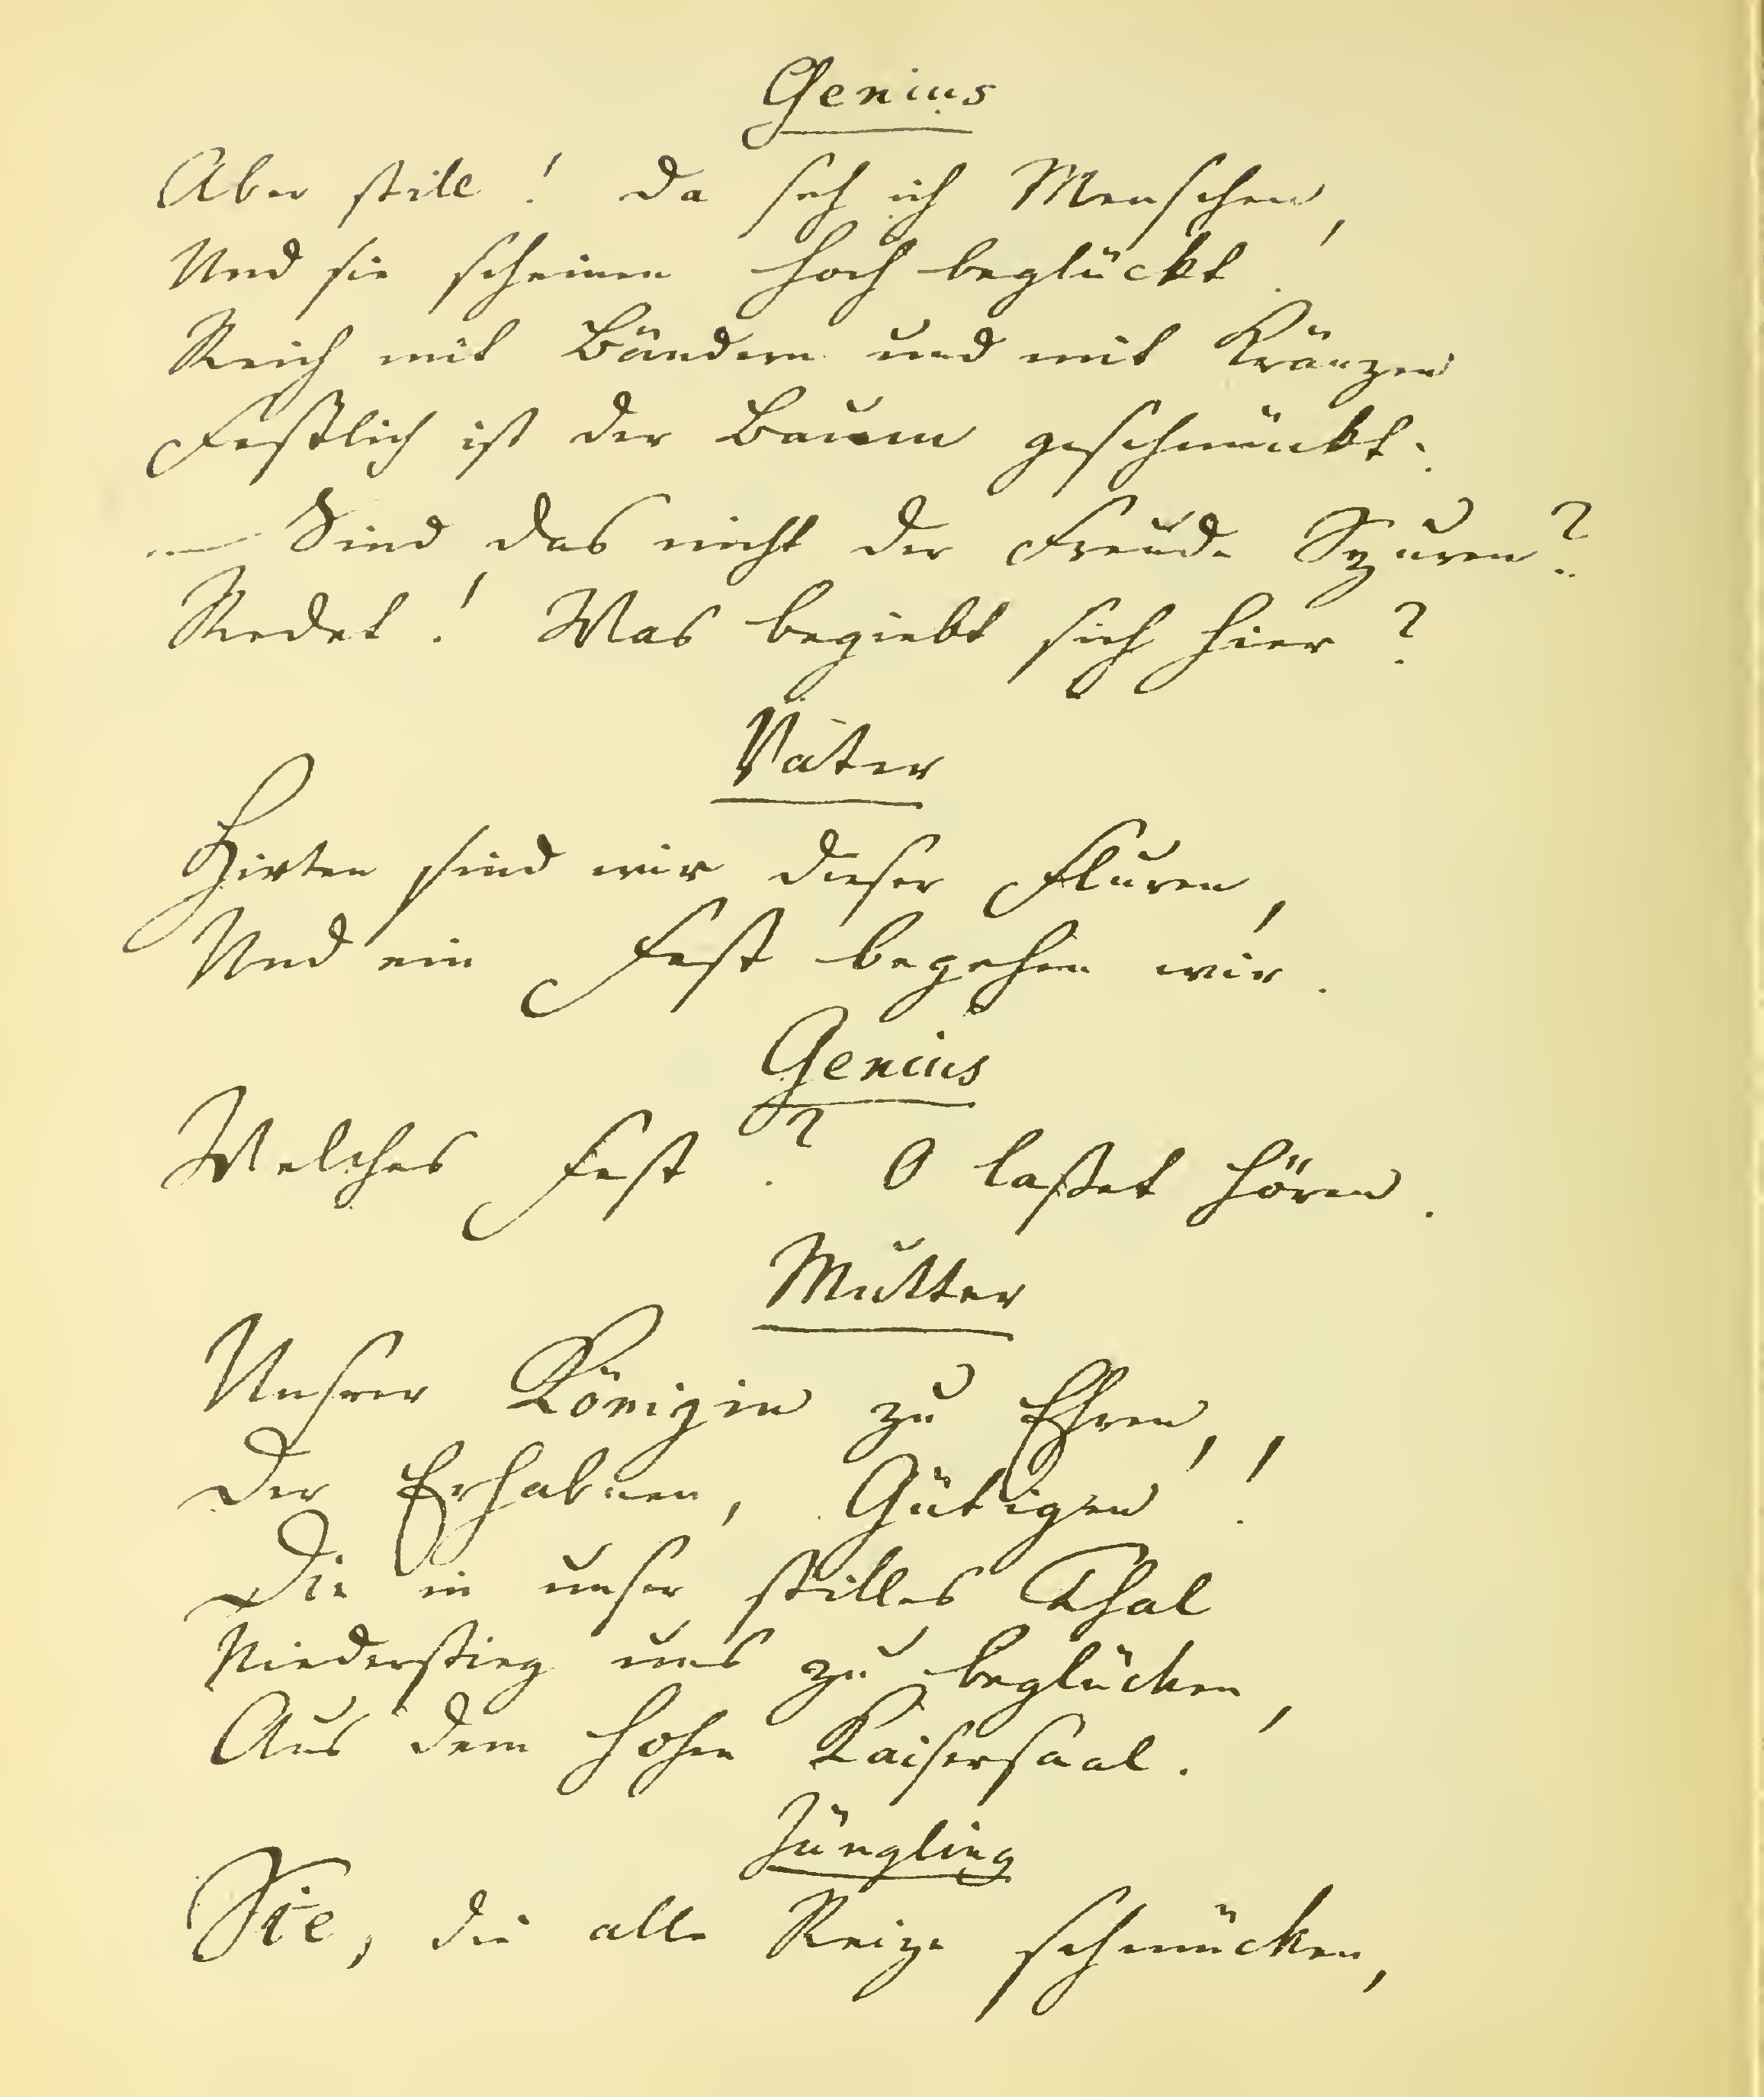 Genius
Aber still! da seh ich Menschen,
Und sie scheinen hoch beglückt.
Reich mit Bändern und mit Kränzen
Festlich ist der Baum geschmückt.
— Sind das nicht der Freude Spuren?
Redet! Was begiebt sich hier?
Vater
Hirten sind wir dieser Fluren,
Und ein Fest begehen wir.
Genius
Welches Fest? O laßet hören.
Mutter
Unsrer Königin zu Ehren,
Der Erhabnen, Gütigen!
Die in unser stilles Thal
Niederstieg uns zu beglücken,
Aus dem hohen Kaisersaal.
Jüngling
Sie, die alle Reize schmücken,